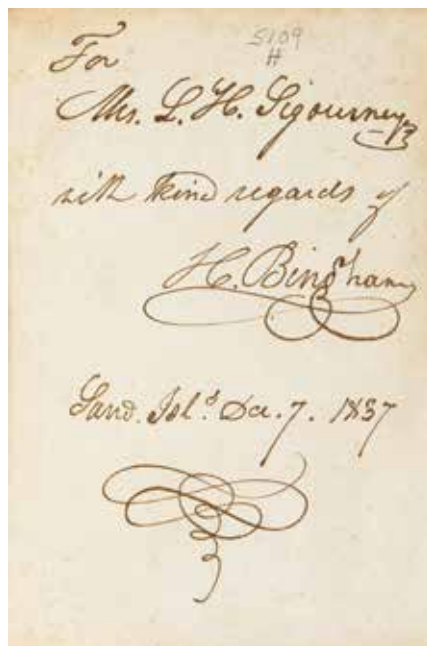 5109
H
For
Mrs. L. H. Sigourney
with kind regards of
H. Bingham
Sand. Isl.ˢ Dec. 7. 1837